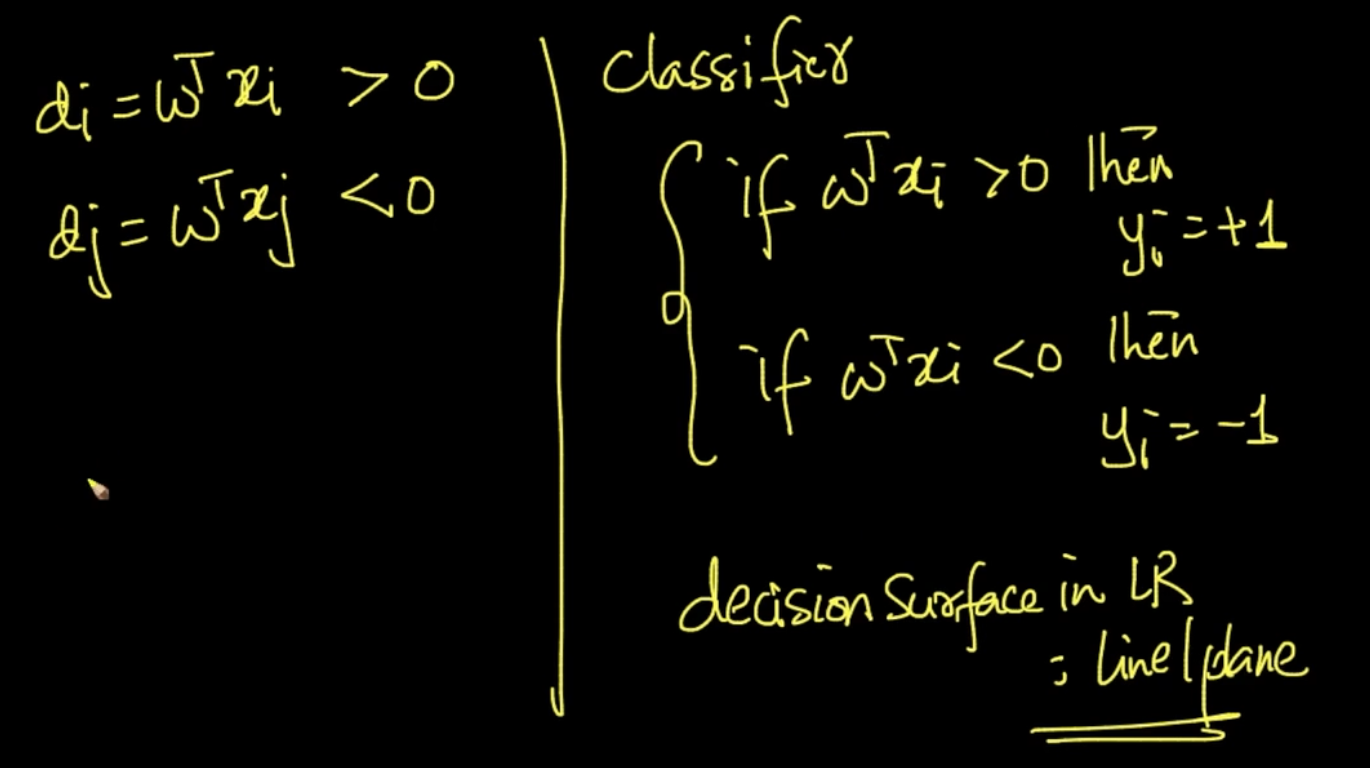 di = wᵀxi > 0
dj = wᵀxj < 0
classifier
if wᵀxi > 0 then
yi = +1
if wᵀxi < 0 then
yi = -1
decision surface in LR
= line/plane